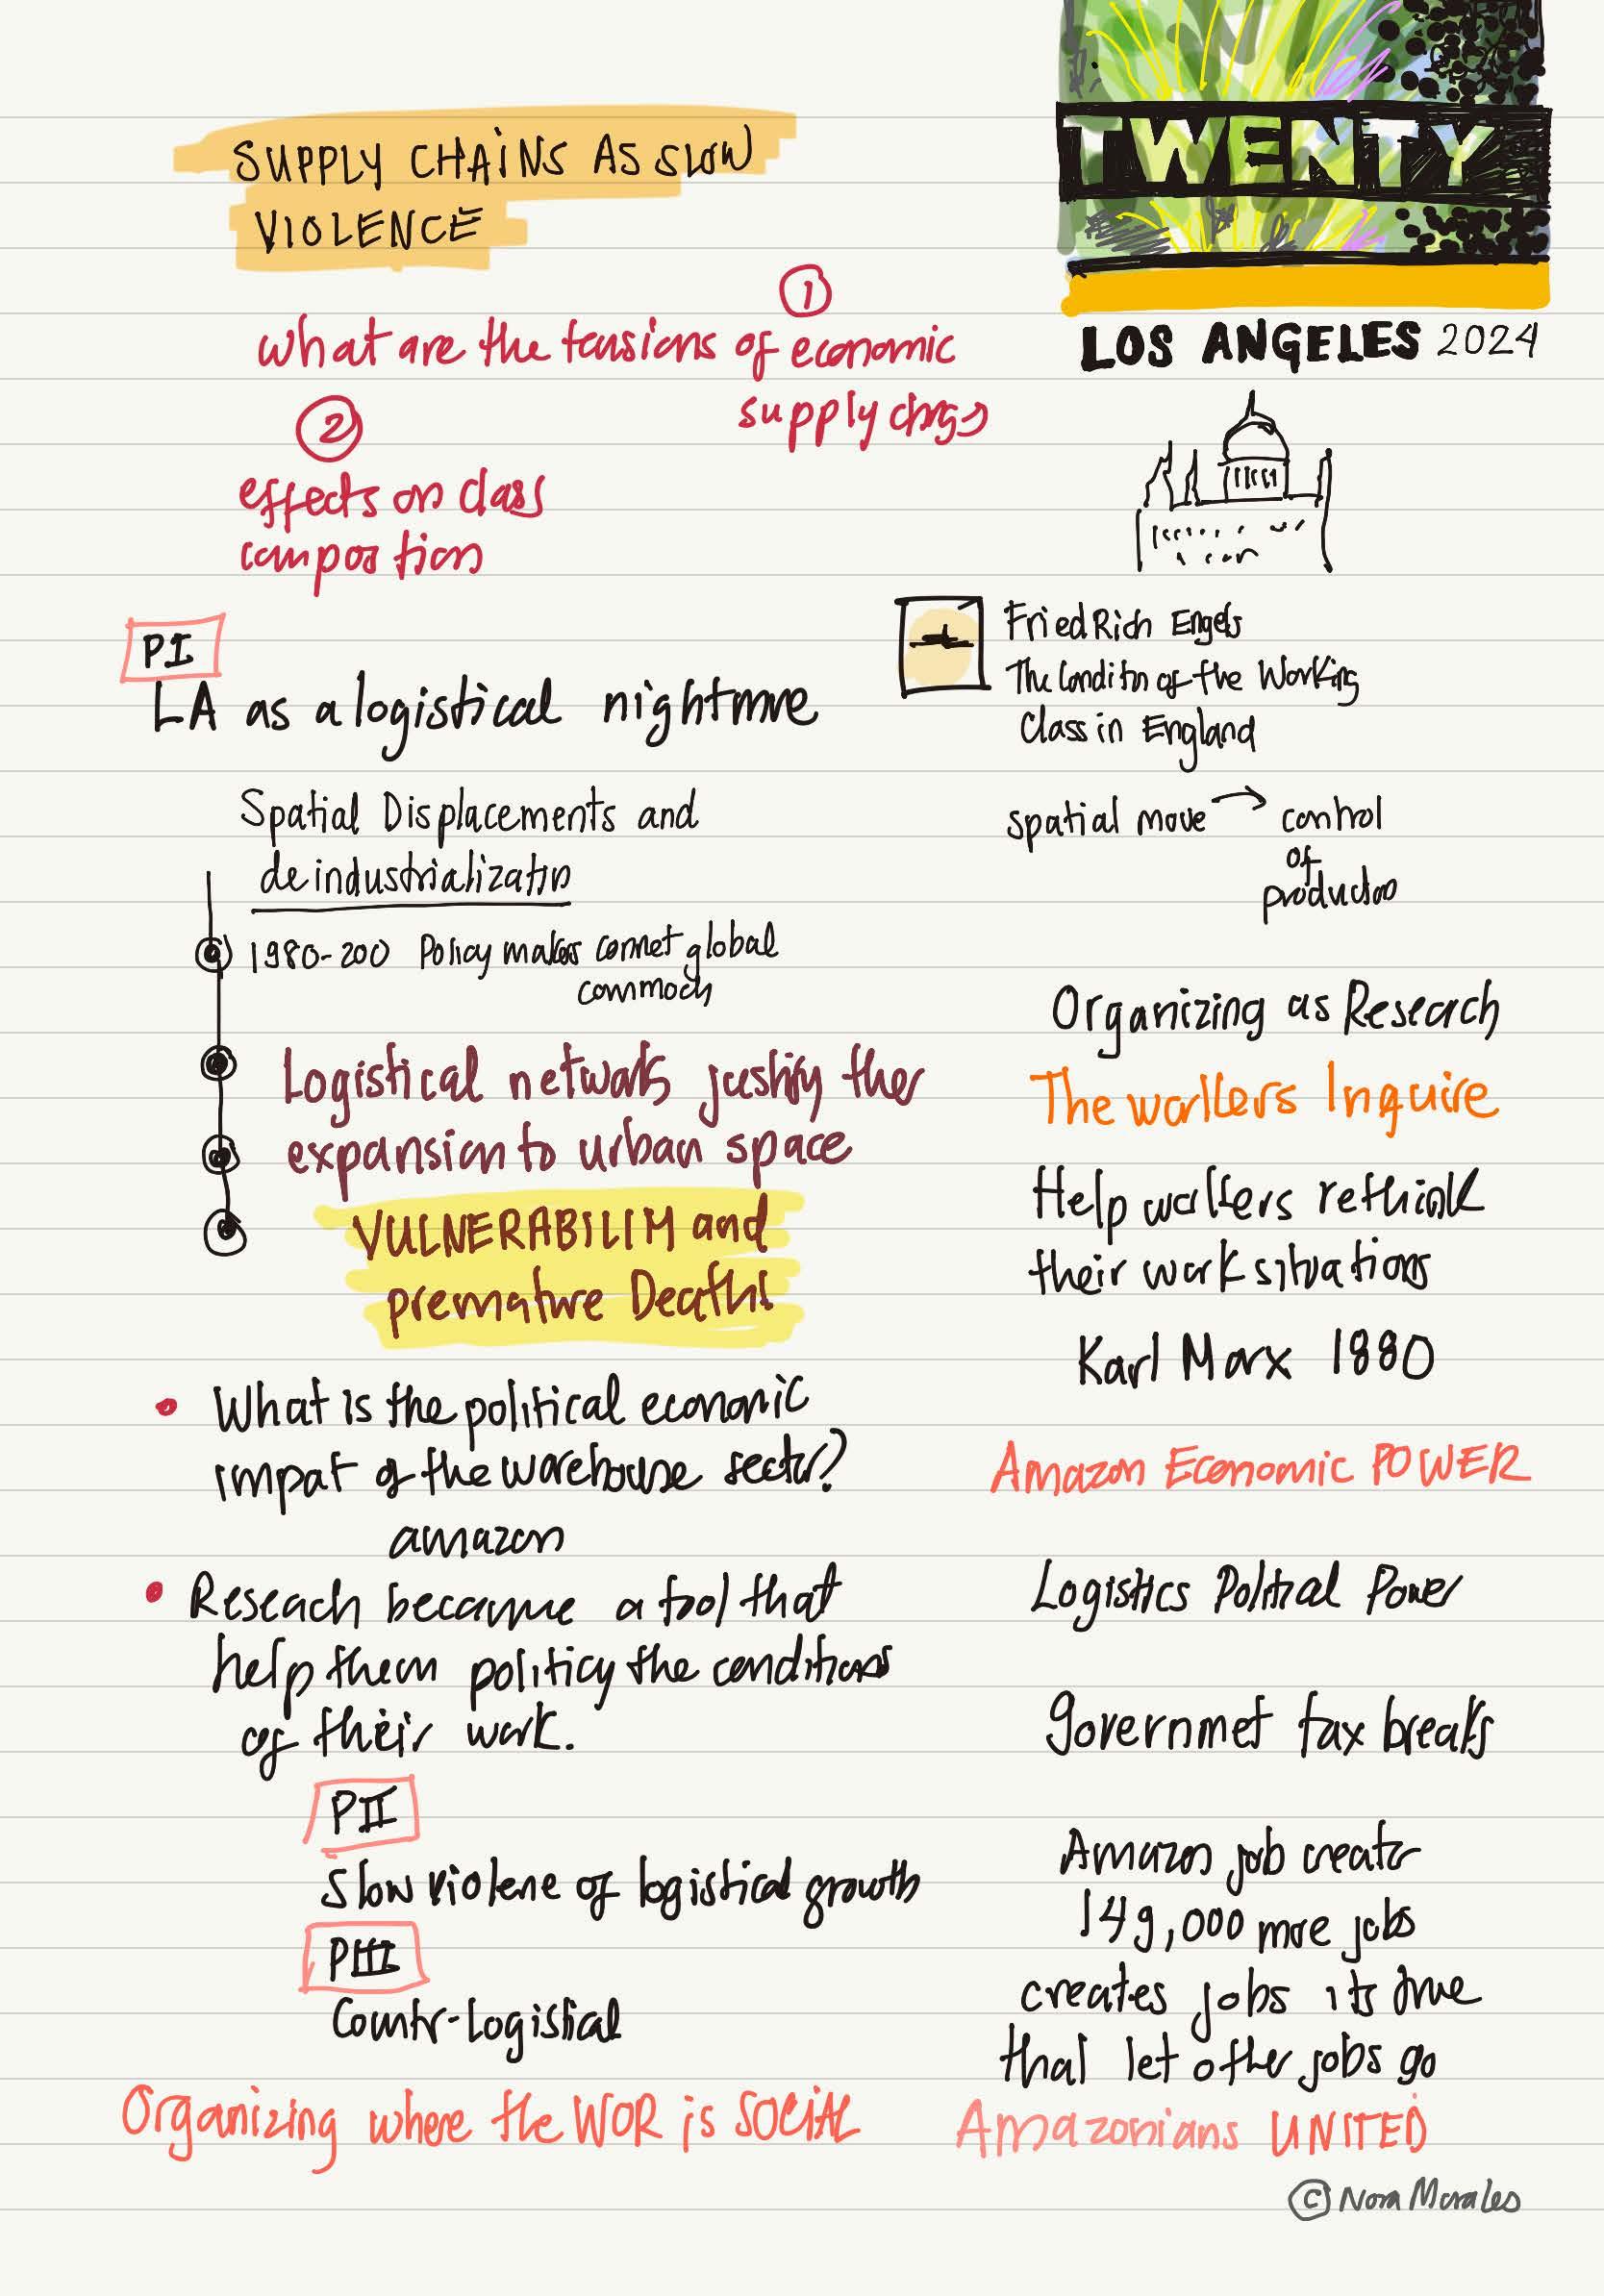 SUPPLY CHAINS AS SLOW
VIOLENCE
1
what are the tensions of economic
supply chngs
2
effects on class
compostion
PI
LA as a logistical nightmre
Spatial Displacements and
deindustrializatin
1980-200 Policy makes connet global
commody
Logistical netwoks justify ther
expansion to urban space
VULNERABILIM and
premature Death!
What is the political economic
impat of the warehouse sector?
amazon
Reseach became a tool that
help them politicy the conditions
of their work.
PII
Slow violene of logistical growth
PIII
Countr-logistial
Organizing where the WOR is SOCIAL
TWENTY
LOS ANGELES 2024
FriedRich Engels
The Conditn of the Working
Class in England
spatial move → control
of
production
Organizing as Reseach
The workers Inquire
Help workers rethink
their work situations
Karl Marx 1880
Amazon Economic POWER
Logistics Politial Power
Governmet tax breaks
Amazon job creator
149,000 more jobs
creates jobs its true
that let other jobs go
Amazonians UNITED
© Nora Morales